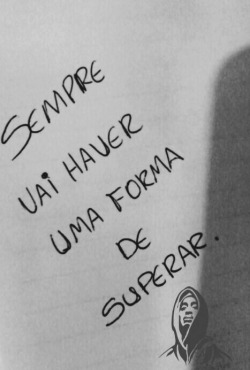 SEMPRE
VAI HAVER
UMA FORMA
DE
SUPERAR.